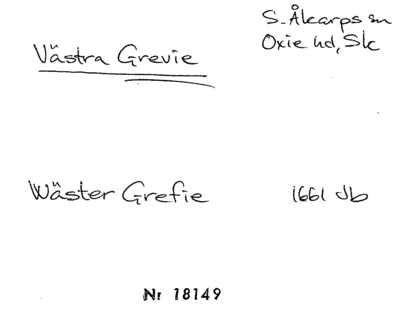 S. Åkarps sn
Västra Grevie
Oxie hd, Sk
Wäster Grefie 1661 Jb
Nr 18149